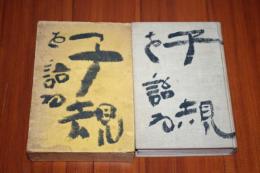 子規
を語る
子規
を語る